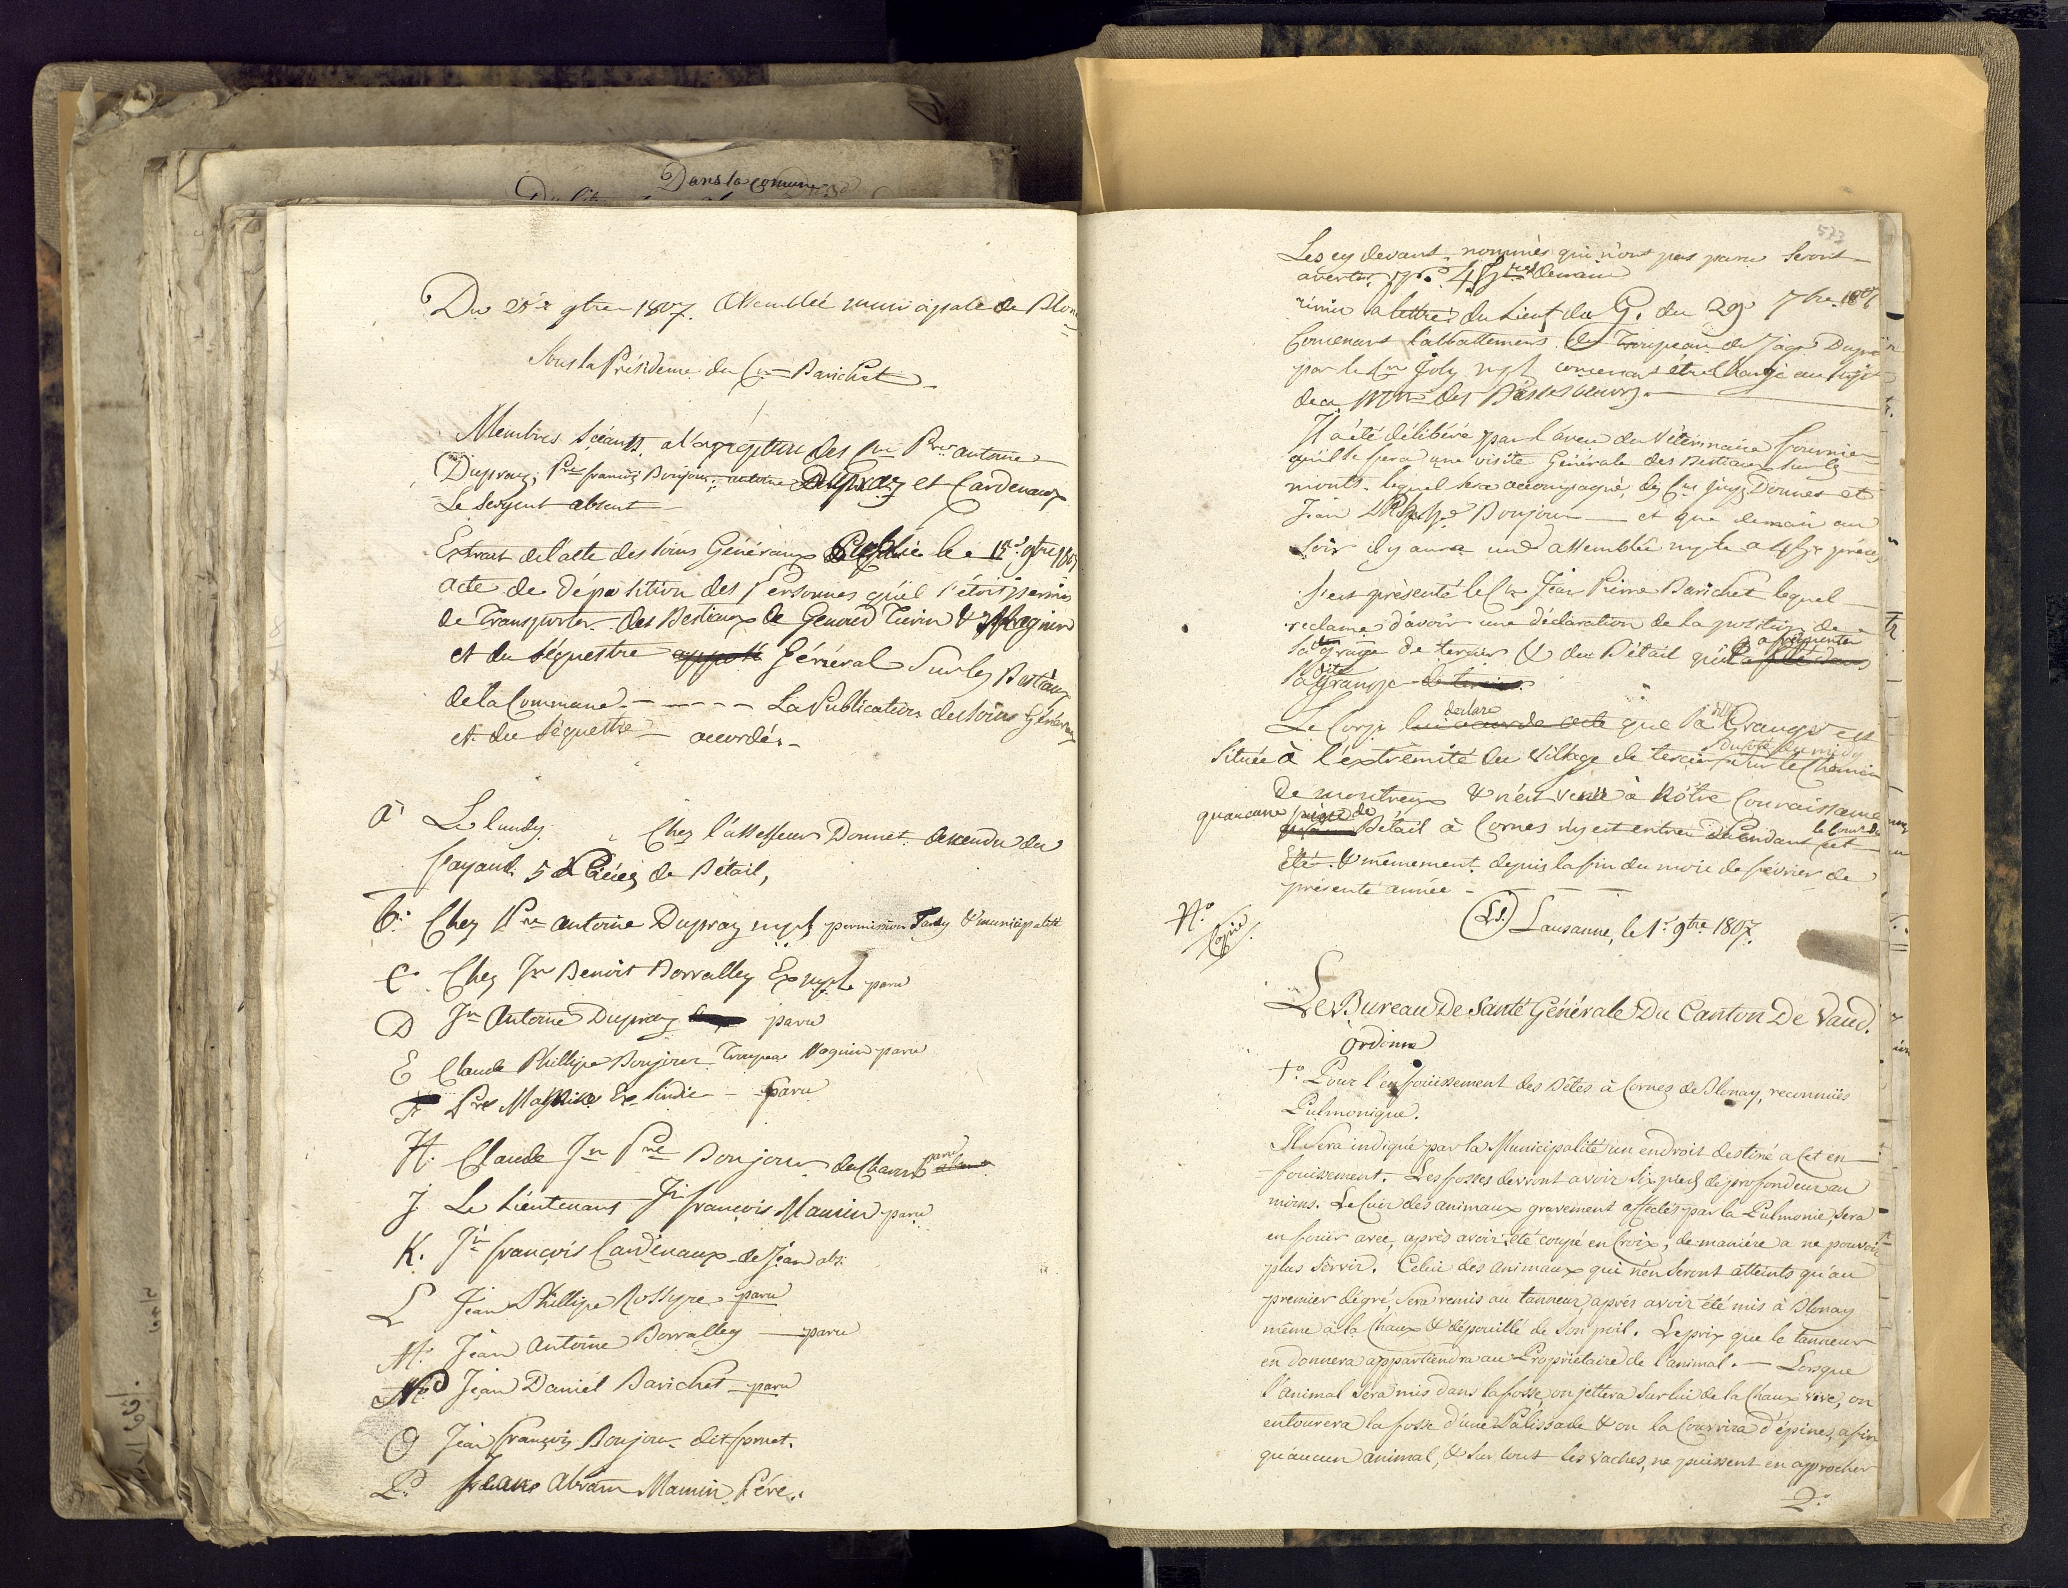 Dans la comune
Du 28e 9bre 1807. Assemblée municipale de Blon
Sous la Présidence du Cn Barichet
Membres Scéants, a l'exception des Cns Pre antoine
Dupraz, Pre françois Bonjour, antoine Dupraz et Cardenaux
Le sergent absent
Extrait de l'acte des soins Généraux Publié le 15e 9bre 1807
acte de déposition des Personnes qu'il s'étoit permis
de Transporter des Bestiaux de Genoud Turin &
et du séquestre apposé Général Sur les Bestiaux
de la Commune. - - - - - La Publication des soins Généraux
et du séquestre - accordés -
a Le lundy. Chez l'assesseur Donnet descendu du
fayaud. 5 Pièces de Bétail,
b. Chez Pre antoine Dupraz mpl permission & municipalité
C. Chez Jn Benoit Borralley Ex mple paru
D Jn Antoine Dupraz paru
E Claude Phillipe Bonjour Troupeau Magnin paru
F Pre Mamin Ex Sindic - paru
H. Claude Jn Pre Bonjour des Chaux paru
J Le Lieutenant Jn françois Mamin paru
K. Jn françois Cardinaux de Jean abs.
L Jean Phillipe Rossyre paru
M. Jean Antoine Borralley - paru
N. Jean Daniel Barichet paru
O Jean françois Bonjour dit fornet.
P. Abram Mamin Père.
573
Les cy devant nommés qui n'ont pas paru seront
avertis pr demain
la lettre du Lieut du G. du 29 7bre 1807
Concernant l'abbattement du Troupeau de Jaqs Dupraz
par le Cn Joly mpl concernant être chargé au sujet
de
Il a été délibéré par l'aveu du Vétérinaire fournier
qu'il se fera une visite Générale des Bestiaux sur les
monts. lequel sera accompagné des Cns Donnet et
Jean Bonjour - et que demain au
soir il y aura une assemblée mple a
S'est présenté le Cn Jean Pierre Barichet lequel
reclame d'avoir une déclaration de la position de
sa grange de tercier & du Bétail qu'il a
la dite grange de tercier.
Le Corps declare que la dite Grange est
située à l'extremité du village de tercier du coté du midy sur le Chemin
de montreux & n'est venu à Nôtre Connaissance
quaucune pièce de Bétail à Cornes n'y est entrée Pendant le cour de cet
Été & mêmement depuis la fin du mois de février de
présente année -
No
Copie.
(LS.) Lausanne, le 1r 9bre 1807.
Le Bureau De Santé Générale Du Canton De Vaud.
Ordonne
1o. Pour l'enfouissement des Bêtes à Cornes de Blonay, reconnües
Pulmonique.
Il sera indiqué par la Municipalité un endroit destiné a Cet en
fouissement. Les fosses devront avoir Six pieds de profondeur au
moins. Le Cuir des animaux gravement affectés par la Pulmonie, sera
enfouir avec, après avoir été coupé en Croix, de maniére a ne pouvoir
plus servir. Celui des animaux qui n'en seront atteints qu'au
premier dégré, sera remis au tanneur, après avoir été mis à Blonay
même à la Chaux & dépouillé de son poil. Le prix que le tanneur
en donnera appartiendra au Propriétaire de l'animal. - Lorsque
l'animal sera mis dans la fosse, on jettera sur lui de la Chaux vive, on
entourera la fosse d'une Palissade & on la Couvrira d'épines, afin
qu'aucun animal, & sur tout les vaches, ne puissent en approcher
2o.